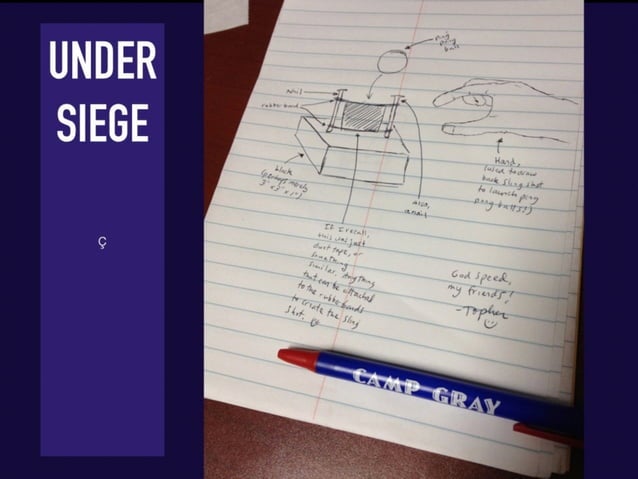 UNDER
SIEGE
ç
ping
pong
ball
Nail
rubber band
block
(perhaps
3" x 3" x 1")
also,
a nail
Hand,
(used to draw
back sling shot
to launch ping
pong balls!)
If I recall,
this was just
duct tape, or
something
similar. Anything
that can be attached
to the rubber bands
to create the sling
shot.
God speed,
my friends!
-Topher
CAMP GRAY